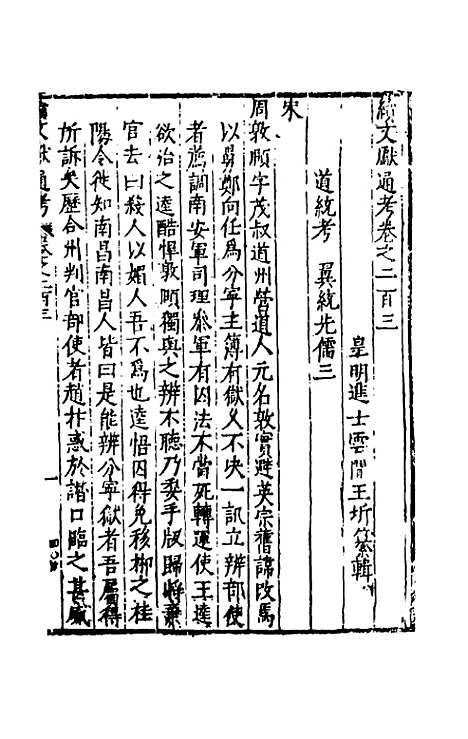 續文獻通考卷之二百三
皇明進士雲間王圻纂輯
道統考　翼統先儒三
宋
周敦頤字茂叔道州營道人元名敦實避英宗舊諱改焉
以舅鄭向任爲分寧主簿有獄久不决一訊立辨部使
者薦調南安軍司理叅軍有囚法不當死轉運使王逵
欲治之逵酷悍敦頤獨與之辨不聽乃委手版歸將棄
官去曰殺人以媚人吾不爲也逵悟囚得免移郴之桂
陽令徙知南昌南昌人皆曰是能辨分寧獄者吾屬得
所訴矣歷合州判官部使者趙抃惑於譖口臨之甚威
續文獻通考
卷之二百三
一